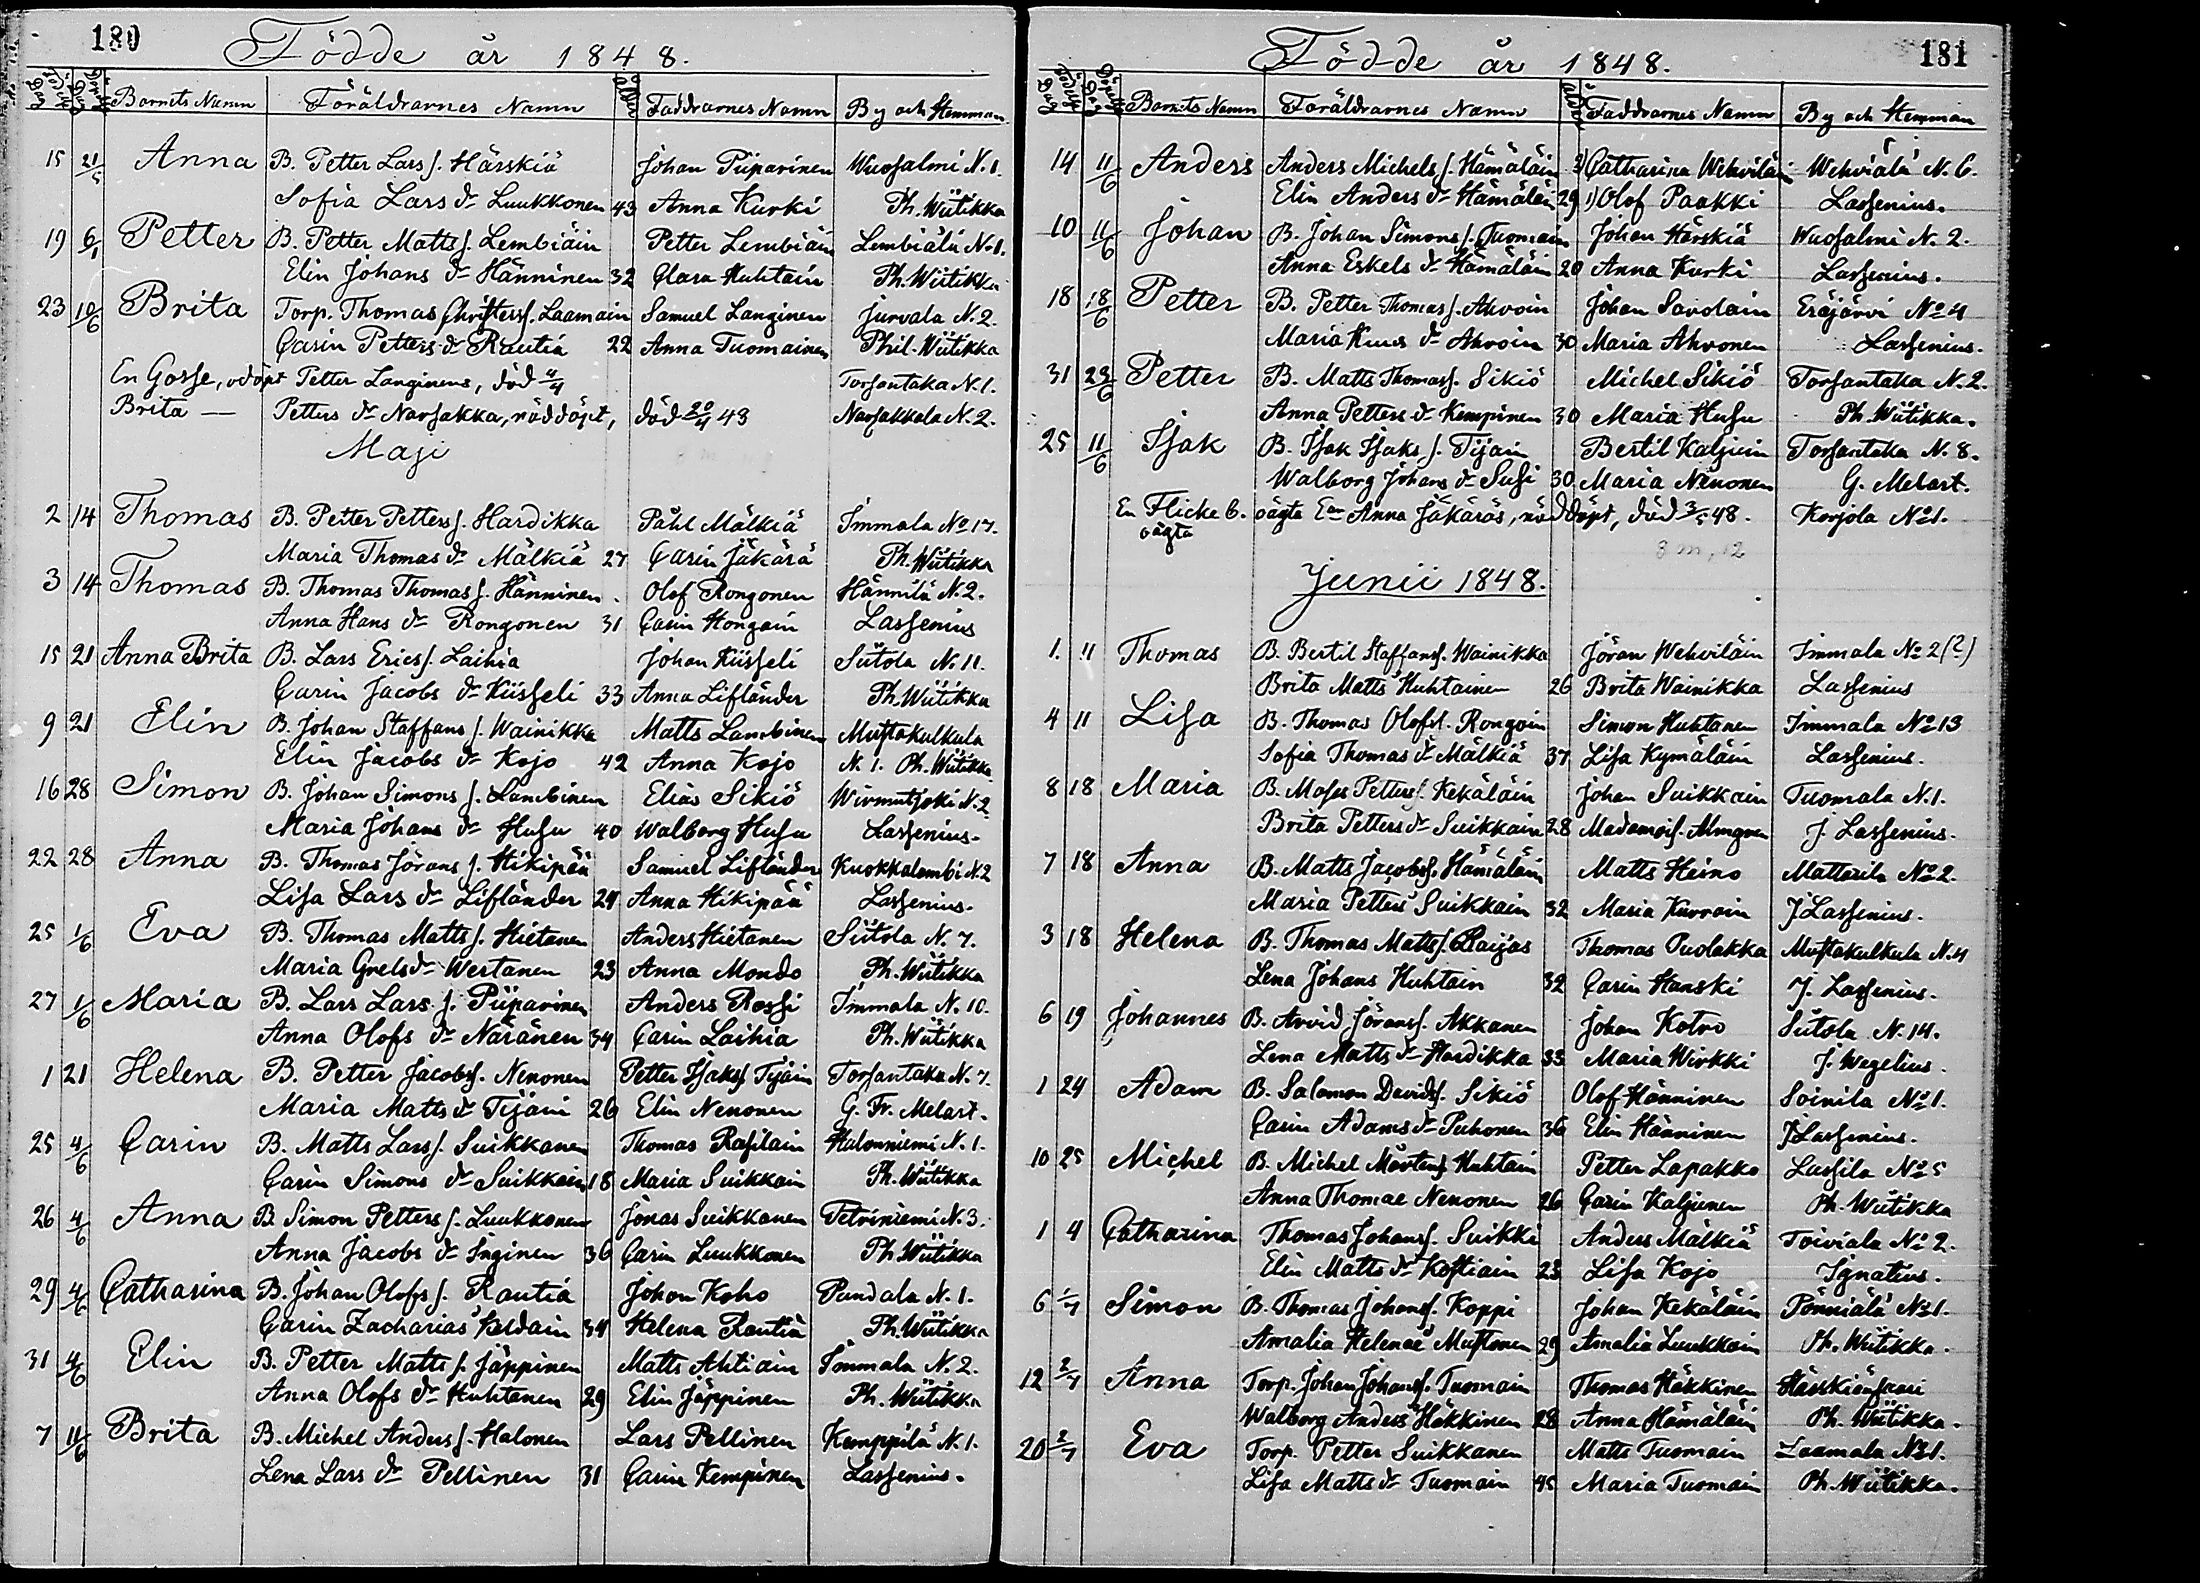 180
Födde år 1848.
Barnets Namn Föräldrarnes Namn Ålder Faddrarnes Namn By och Hemman
15 21/5 Anna B. Petter Larsſ. Härskiä Johan Piiparinen Wuoſalmi N. 1.
Sofia Lars dr Luukkonen 43 Anna Kurki Ph. Wiitikka
19 6/1 Petter B. Petter Mattsſ. Lembiäin Petter Lembiäin Lembiälä No 1.
Elin Johans dr Hänninen 32 Clara Huhtain Ph. Wiitikka
23 10/6 Brita Torp. Thomas Christersſ. Laamain Samuel Langinen Jurvala N. 2.
Carin Petters dr Rautia 22 Anna Tuomainen Phil. Wiitikka
En Gosse, odöpt Petter Langinens, död 4/4 Torſantaka N. 1.
Brita — Petters dr Narſakka, nöddöpt, död 20/4 43 Narſakkala N. 2.
Maji
2 14 Thomas B. Petter Pettersſ. Hardikka Påhl Mälkiä Immala No 17.
Maria Thomas dr Mälkiä 27 Carin Jäkärä Ph. Wiitikka
3 14 Thomas B. Thomas Thomasſ. Hänninen Olof Rongonen Hännilä N. 2.
Anna Hans dr Rongonen 31 Carin Hongain Laſſenius
15 21 Anna Brita B. Lars Ericsſ. Laihia Johan Kiiſſeli Siitola N. 11.
Carin Jacobs dr Kiiſſeli 33 Anna Lifländer Ph. Wiitikka
9 21 Elin B. Johan Staffans ſ. Wainikka Matts Lambinen Muſtakulkula
Elin Jacobs dr Kojo 42 Anna Kojo N. 1. Ph. Wiitikka
16 28 Simon B. Johan Simons ſ. Lambinen Elias Sikiö Wirmutjoki N. 2
Maria Johans dr Huſu 40 Walborg Huſu Laſſenius.
22 28 Anna B. Thomas Jörans ſ. Hikipää Samuel Lifländer Kuokkalambi N. 2
Liſa Lars dr Lifländer 24 Anna Hikipää Laſſenius.
25 1/6 Eva B. Thomas Mattsſ. Hietanen Anders Hietanen Siitola N. 7.
Maria Grels dr Wertanen 23 Anna Mondo Ph. Wiitikka
27 1/6 Maria B. Lars Lars ſ. Piiparinen Anders Roſſi Immala N. 10.
Anna Olofs dr Näränen 34 Carin Laihia Ph. Wiitikka
1 21 Helena B. Petter Jacobsſ. Nenonen Petter Iſaksſ Tijäin Torſantaka N. 7.
Maria Matts dr Tijäin 26 Elin Nenonen G. Fr. Melart.
25 4/6 Carin B. Matts Larsſ. Suikkanen Thomas Raſilain Halonniemi N. 1.
Carin Simons dr Suikkain 18 Maria Suikkain Ph. Wiitikka
26 4/6 Anna B. Simon Petters ſ. Luukkonen Jonas Suikkanen Petriniemi N. 3.
Anna Jacobs dr Inginen 36 Carin Luukkonen Ph. Wiitikka
29 4/6 Catharina B. Johan Olofs ſ. Rautia Johan Koho Pundala N. 1.
Carin Zacharias Kerdain 34 Helena Rautia Ph. Wiitikka
31 4/6 Elin B. Petter Matts ſ. Jäppinen Matts Ahtiain Immala N. 2.
Anna Olofs dr Huhtanen 29 Elin Jäppinen Ph. Wiitikka
7 11/6 Brita B. Michel Andersſ. Halonen Lars Pellinen Kemppilä N. 1.
Lena Lars dr Pellinen 31 Carin Kempinen Laſſenius.
181
Födde år 1848.
Barnets Namn Föräldrarnes Namn Ålder Faddrarnes Namn By och Hemman
14 11/6 Anders Anders Michelsſ. Hämäläin 2) Catharina Wehviläin Wehviälä N. 6.
Elin Anders dr Hämäläin 29 1) Olof Paakki Laſſenius.
10 11/6 Johan B. Johan Simonsſ. Tuomain Johan Härskiä Wuoſalmi N. 2.
Anna Eskels dr Hämäläin 20 Anna Kurki Laſſenius.
18 18/6 Petter B. Petter Thomasſ. Ahvoin Johan Savolain Eräjärvi No 4
Maria dr Ahvoin 30 Maria Ahvonen Laſſenius.
31 23/6 Petter B. Matts Thomasſ. Sikiö Michel Sikiö Torſantaka N. 2.
Anna Petters dr Kempinen 30 Maria Huſu Ph. Wiitikka.
25 11/6 Iſak B. Iſak Iſaks ſ. Tijäin Bertil Kaljuin Torſantaka N. 8.
Walborg Johans dr Suſi 30 Maria Nenonen G. Melart.
En Flicka 6. oägta Ean Anna Jäkäräs, nöddöpt, död 3/5 48. Korjola No 1.
oägta
3 m, 12
Junii 1848.
1. 11 Thomas B. Bertil Staffansſ. Wainikka Jöran Wehviläin Immala No 2 (?)
Brita Matts Huhtainen 26 Brita Wainikka Laſſenius
4 11 Liſa B. Thomas Olofsſ. Rongoin Simon Huhtanen Immala No 13
Sofia Thomas dr Mälkiä 37 Liſa Kymäläin Laſſenius.
8 18 Maria B. Moſes Pettersſ. Kekäläin Johan Suikkain Tuomala N. 1.
Brita Petters dr Suikkain 28 Madamoiſ. Almgren J. Laſſenius.
7 18 Anna B. Matts Jacobsſ. Hämäläin Matts Heino Mattarila No 2.
Maria Petters Suikkain 32 Maria Kurroin J Laſſenius.
3 18 Helena B. Thomas Mattsſ. Raijas Thomas Puolakka Muſtakulkula N. 4
Lena Johans Huhtain 32 Carin Hanski J. Laſſenius.
6 19 Johannes B. Arvid Jöransſ. Akkanen Johan Kotro Siitola N. 14.
Lena Matts dr Hardikka 33 Maria Wirkki J. Wegelius.
1 24 Adam B. Salomon Davidsſ. Sikiö Olof Hänninen Soinila No 1.
Carin Adams dr Puhonen 36 Elin Hänninen J Laſſenius.
10 25 Michel B. Michel Mårtensſ Huhtain Petter Lapakko Luſſila No 5
Anna Thomae Nenonen 26 Carin Kaljunen Ph. Wiitikka
1 4 Catharina Thomas Johansſ. Suikki Anders Mälkiä Toiviala No 2.
Elin Matts dr Koſtiain 23 Liſa Kojo Ignatius.
6 1/7 Simon B. Thomas Johansſ. Koppi Johan Kekäläin Pönniälä No 1.
Amalia Helenae Muſtonen 29 Amalia Luukkain Ph. Wiitikka.
12 2/7 Anna Torp. Johan Johansſ. Tuomain Thomas Häkkinen Härskiänſaari
Walborg Anders Häkkinen 28 Anna Hämäläin Ph. Wiitikka.
20 2/7 Eva Torp. Petter Suikkanen Matts Tuomain Laamala No 1.
Liſa Matts dr Tuomain 45 Maria Tuomain Ph. Wiitikka.